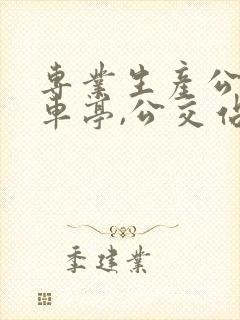 專業生產公
車亭,公交佔
季建業